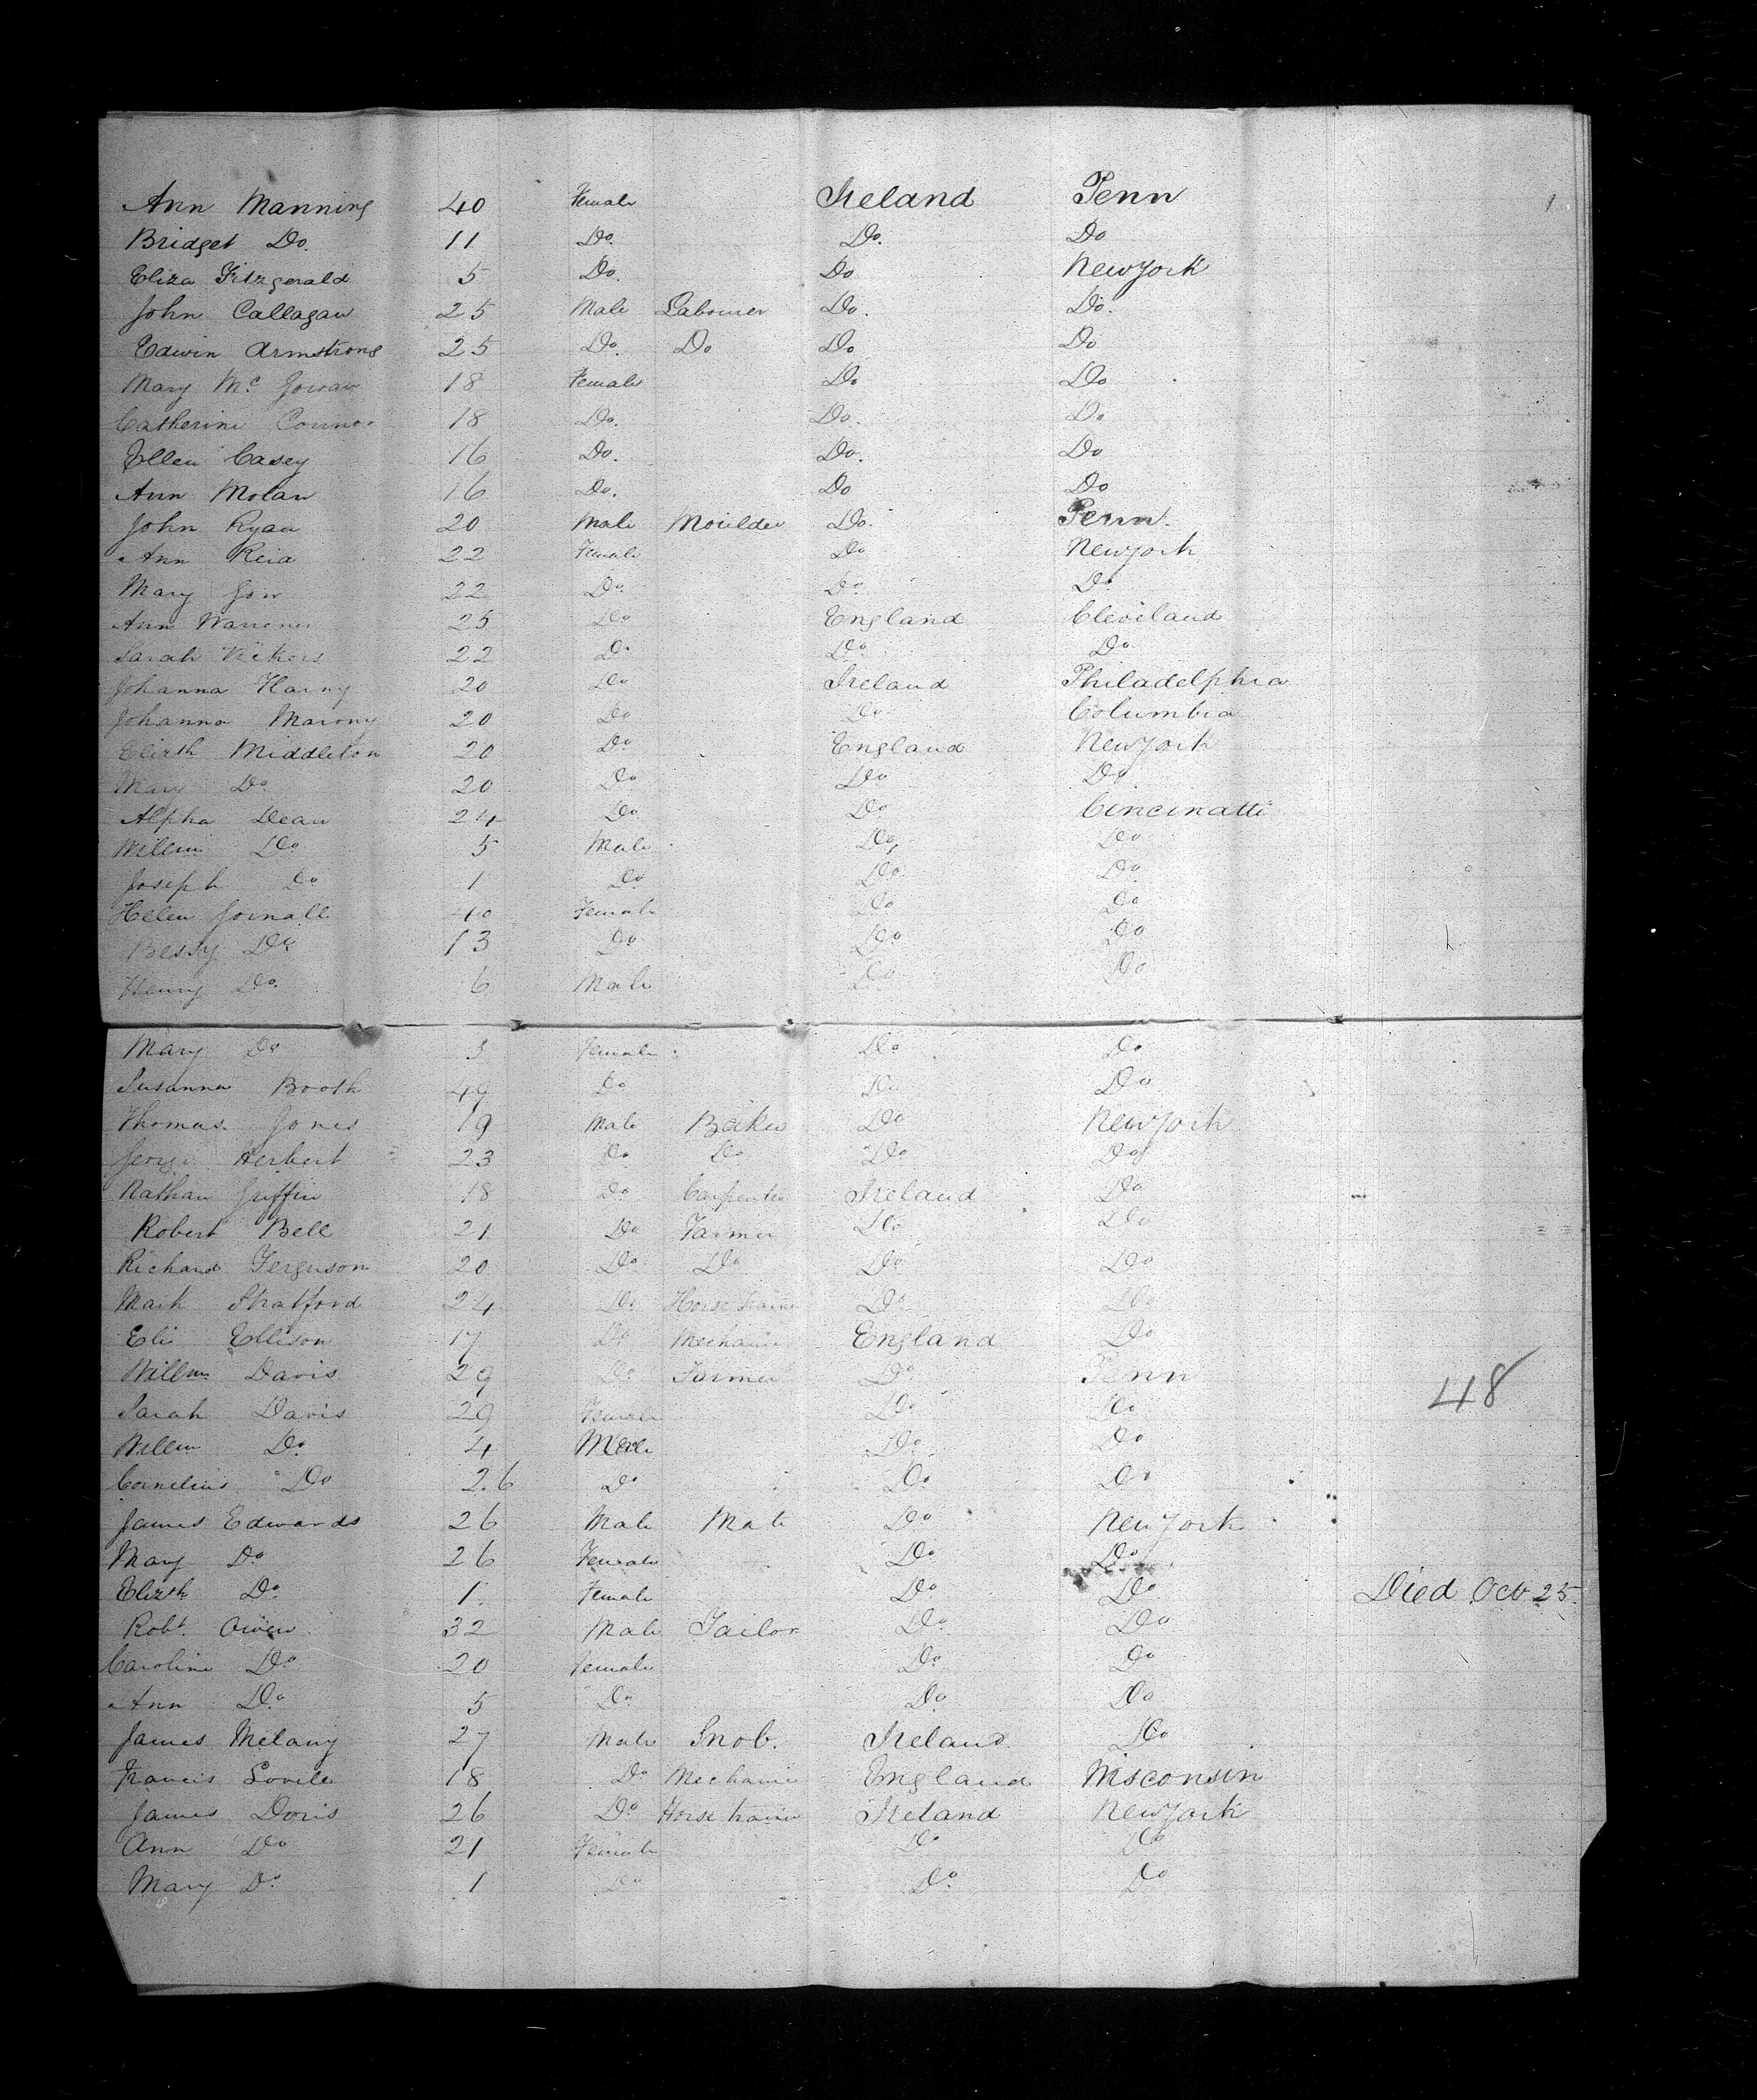 Ann Manning 40 Female Ireland Penn
Bridget Do. 11 Do. Do. Do
Eliza Fitzgerald 5 Do. Do New york
John Callagan 25 Male Labourer Do. Do.
Edwin Armstrong 25 Do. Do Do Do
Mary Mc Gowan 18 Female Do Do
Catherine Connor 18 Do. Do. Do
Ellen Casey 16 Do. Do. Do
Ann Molan 16 Do. Do Do
John Ryan 20 Male Moulder Do. Penn.
Ann Reid 22 Female Do New york
Mary Gow 22 Do. Do. Do.
Ann Warrener 25 Do England Cleveland
Sarah Vickers 22 Do Do. Do
Johanna Harny 20 Do Ireland Philadelphia
Johanna Marony 20 Do Do Columbia
Elizth Middleton 20 Do England New york
Mary Do. 20 Do Do Do
Alpha Dean 24 Do Do Cincinatti
Willm Do. 5 Male Do. Do
Joseph Do 1 Do Do Do
Helen Gornall 40 Female Do Do
Bessy Do 13 Do. Do Do
Henry Do. 6 Male Do Do
Mary Do 3 Female Do Do
Susanna Booth 49 Do Do Do
Thomas Jones 19 Male Baker Do New york
George Herbert 23 Do Do Do Do
Nathan Griffin 18 Do Carpenter Ireland Do
Robert Bell 21 Do Farmer Do Do
Richard Ferguson 20 Do Do Do Do
Mark Stratford 24 Do Horse trainer Do Do
Eli Ellison 17 Do Mechanic England Do
Willm Davis 29 Do Farmer Do Penn
48
Sarah Davis 29 Female Do Do
Willm Do. 4 Male Do Do
Cornelius Do 26 Do Do Do
James Edwards 26 Male Mate Do New york
Mary Do. 26 Female Do. Do
Elizth Do. 1. Female Do Do Died Oct 25.
Robt. Owen 32 Male Tailor Do. Do
Caroline Do 20 Female Do Do
Ann Do. 5 Do. Do. Do
James Melany 27 Male Snob. Ireland Do
Francis Lovele 18 Do Mechanic England Wisconsin
James Doris 26 Do Horse trainer Ireland New york
Ann Do 21 Female Do Do
Mary Do 1 Do Do. Do